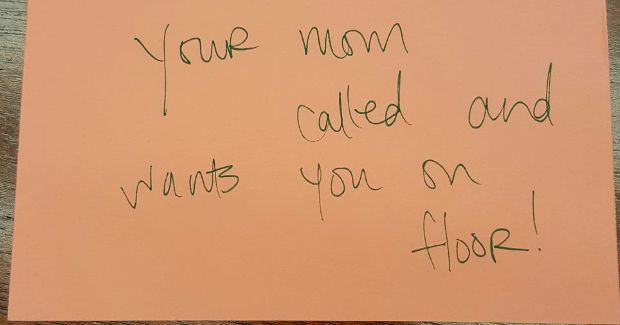 Your mom
called and
wants you on
floor!